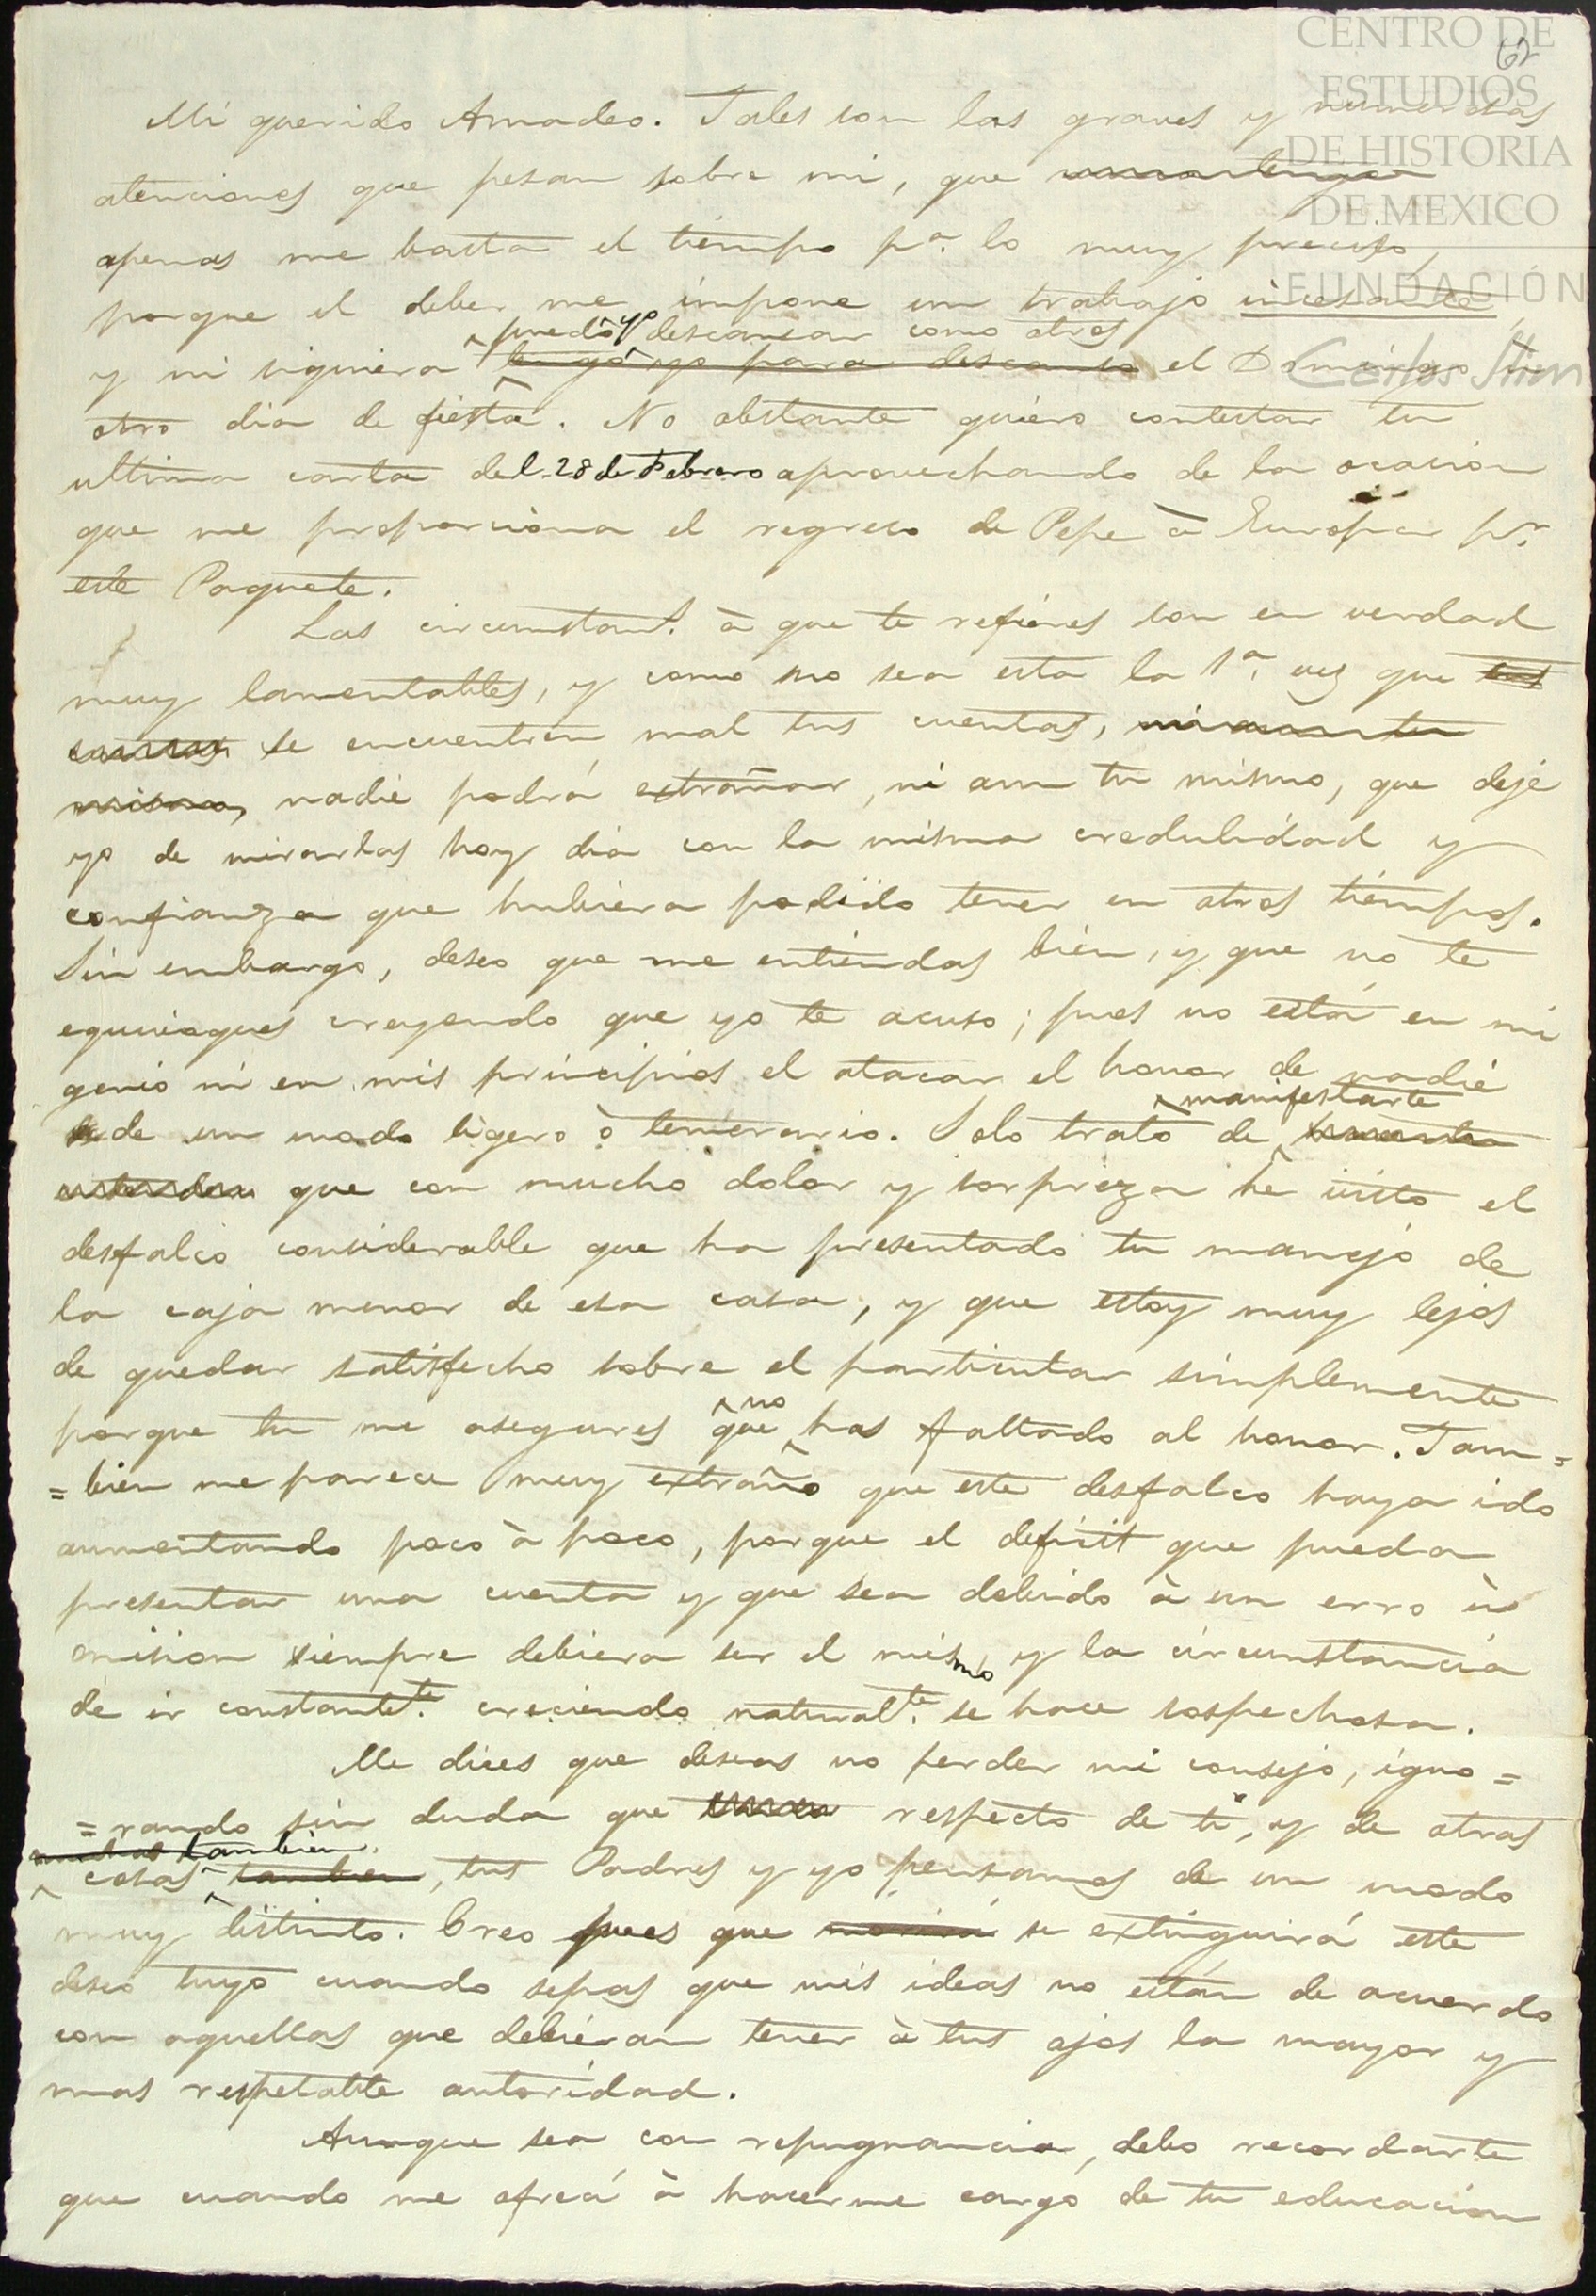 CENTRO DE
ESTUDIOS
DE HISTORIA
DE MEXICO
FUNDACIÓN
Carlos Slim
62
Mi querido Amadeo. Tales son las graves y numerosas
atenciones que pesan sobre mi, que
apenas me basta el tiempo pª. lo muy preciso,
porque el deber me impone un trabajo incesante,
puedo yo descansar como otros
y ni siquiera tengo yo para descanso el Domingo ú
otro dia de fiesta. No obstante quiero contestar tu
ultima carta del 28 de Febrero aprovechando de la ocasion
que me proporciona el regreso de Pepe à Europa pr.
este Paquete.
Las circumstans. à que te refieres son en verdad
muy lamentables, y como no sea esta la 1ª. vez que tus
cuentas se encuentren mal tus cuentas, ni aun tu
mismo, nadie podrá extrañar, ni aun tu mismo, que deje
yo de mirarlas hoy dia con la misma credulidad y
confianza que hubiera podido tener en otros tiempos.
Sin embargo, deseo que me entiendas bien, y que no te
equivoques creyendo que yo te acuso; pues no está en mi
genio ni en mis principios el atacar el honor de nadie
manifestarte
de un modo ligero ò temerario. Solo trato de
que con mucho dolor y sorpreza he visto el
desfalco considerable que ha presentado tu manejo de
la caja menor de esa casa, y que estoy muy lejos
de quedar satisfecho sobre el particular simplemente
no
porque tu me asegures que has faltado al honor. Tam=
=bien me parece muy extraño que este desfalco haya ido
aumentando poco à poco, porque el deficit que pueda
presentar una cuenta y que sea debido à un erro ù
omision siempre debiera ser el mismo, y la circunstancia
de ir constantete. creciendo naturalte. se hace sospechosa.
Me dices que deseas no perder mi consejo, igno=
=rando sin duda que respecto de ti, y de otras
muchas tambien
cosas tambien, tus Padres y yo pensamos de un modo
muy distinto. Creo pues que se extinguirá este
deseo tuyo cuando sepas que mis ideas no están de acuerdo
con aquellas que debieran tener à tus ojos la mayor y
mas respetable autoridad.
Aunque sea con repugnancia, debo recordarte
que cuando me ofrecí à hacerme cargo de tu educacion